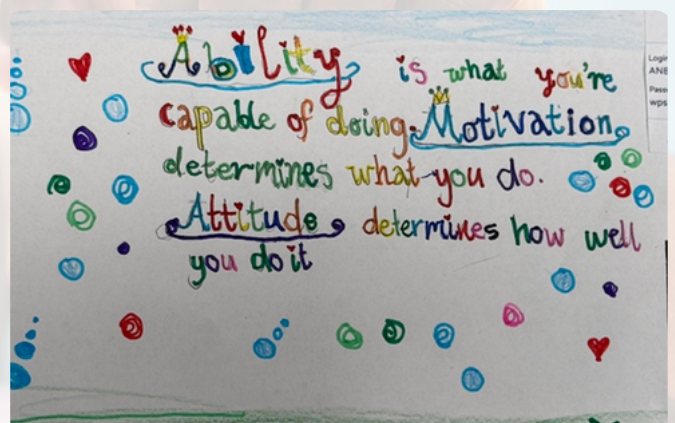 Ability is what you're
capable of doing. Motivation
determines what you do.
Attitude determines how well
you do it
Login
Pass
wps